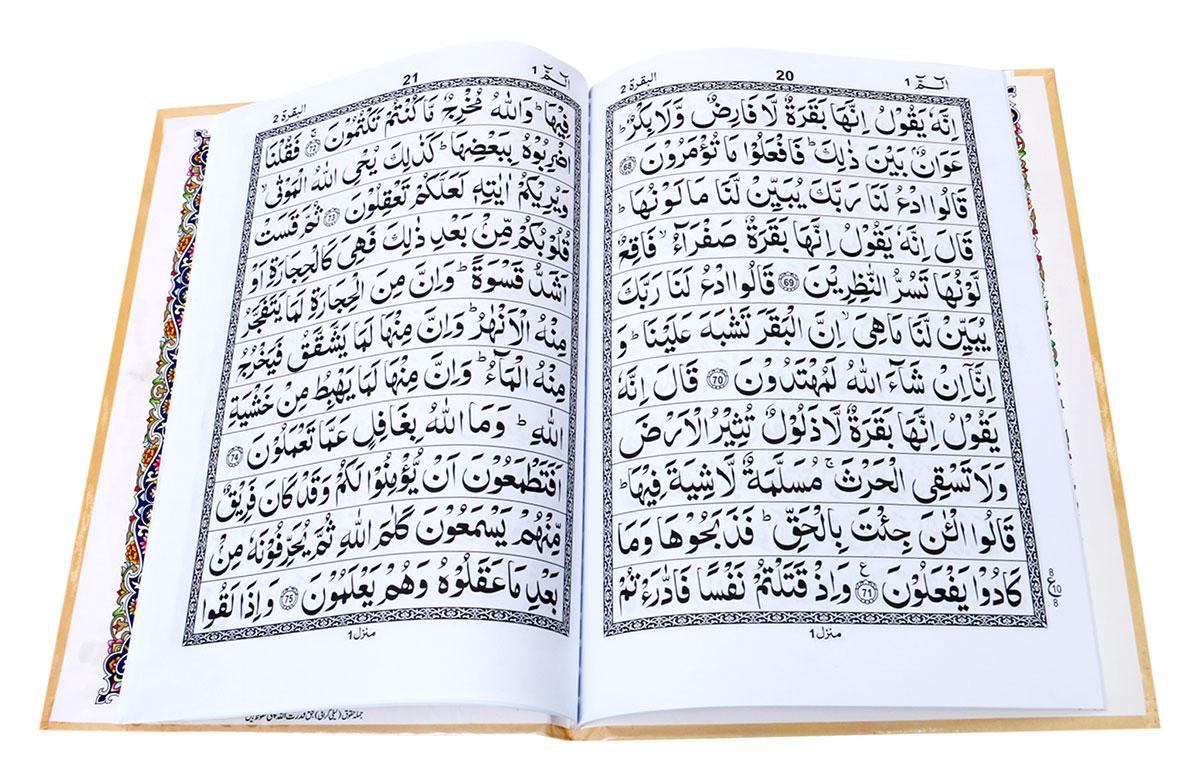 الٓمّٓ ١
20
البقرة ٢
اِنَّهٗ یَقُوْلُ اِنَّهَا بَقَرَةٌ لَّا فَارِضٌ وَّلَا بِكْرٌ ؕ
عَوَانٌۢ بَیْنَ ذٰلِكَ ؕ فَافْعَلُوْا مَا تُؤْمَرُوْنَ ﴿68﴾
قَالُوا ادْعُ لَنَا رَبَّكَ یُبَیِّنْ لَّنَا مَا لَوْنُهَا ؕ
قَالَ اِنَّهٗ یَقُوْلُ اِنَّهَا بَقَرَةٌ صَفْرَآءُ ۙ فَاقِعٌ
لَّوْنُهَا تَسُرُّ النّٰظِرِیْنَ ﴿69﴾ قَالُوا ادْعُ لَنَا رَبَّكَ
یُبَیِّنْ لَّنَا مَا هِیَ ۙ اِنَّ الْبَقَرَ تَشٰبَهَ عَلَیْنَا ؕ وَ
اِنَّاۤ اِنْ شَآءَ اللّٰهُ لَمُهْتَدُوْنَ ﴿70﴾ قَالَ اِنَّهٗ
یَقُوْلُ اِنَّهَا بَقَرَةٌ لَّا ذَلُوْلٌ تُثِیْرُ الْاَرْضَ
وَلَا تَسْقِی الْحَرْثَ ۚ مُسَلَّمَةٌ لَّا شِیَةَ فِیْهَا ؕ
قَالُوا الْـٰٔنَ جِئْتَ بِالْحَقِّ ؕ فَذَبَحُوْهَا وَمَا
كَادُوْا یَفْعَلُوْنَ ﴿71﴾ ع وَاِذْ قَتَلْتُمْ نَفْسًا فَادّٰرَءْتُمْ
8 ع 10 8
منزل ١
الٓمّٓ ١
21
البقرة ٢
فِیْهَا ؕ وَاللّٰهُ مُخْرِجٌ مَّا كُنْتُمْ تَكْتُمُوْنَ ۚ ﴿72﴾ فَقُلْنَا
اضْرِبُوْهُ بِبَعْضِهَا ؕ كَذٰلِكَ یُحْیِ اللّٰهُ الْمَوْتٰی ۙ
وَیُرِیْكُمْ اٰیٰتِهٖ لَعَلَّكُمْ تَعْقِلُوْنَ ﴿73﴾ ثُمَّ قَسَتْ
قُلُوْبُكُمْ مِّنْۢ بَعْدِ ذٰلِكَ فَهِیَ كَالْحِجَارَةِ اَوْ
اَشَدُّ قَسْوَةً ؕ وَاِنَّ مِنَ الْحِجَارَةِ لَمَا یَتَفَجَّرُ
مِنْهُ الْاَنْهٰرُ ؕ وَاِنَّ مِنْهَا لَمَا یَشَّقَّقُ فَیَخْرُجُ
مِنْهُ الْمَآءُ ؕ وَاِنَّ مِنْهَا لَمَا یَهْبِطُ مِنْ خَشْیَةِ
اللّٰهِ ؕ وَمَا اللّٰهُ بِغَافِلٍ عَمَّا تَعْمَلُوْنَ ﴿74﴾
اَفَتَطْمَعُوْنَ اَنْ یُّؤْمِنُوْا لَكُمْ وَقَدْ كَانَ فَرِیْقٌ
مِّنْهُمْ یَسْمَعُوْنَ كَلٰمَ اللّٰهِ ثُمَّ یُحَرِّفُوْنَهٗ مِنْۢ
بَعْدِ مَا عَقَلُوْهُ وَهُمْ یَعْلَمُوْنَ ﴿75﴾ وَاِذَا لَقُوا
منزل ١
جملہ حقوق